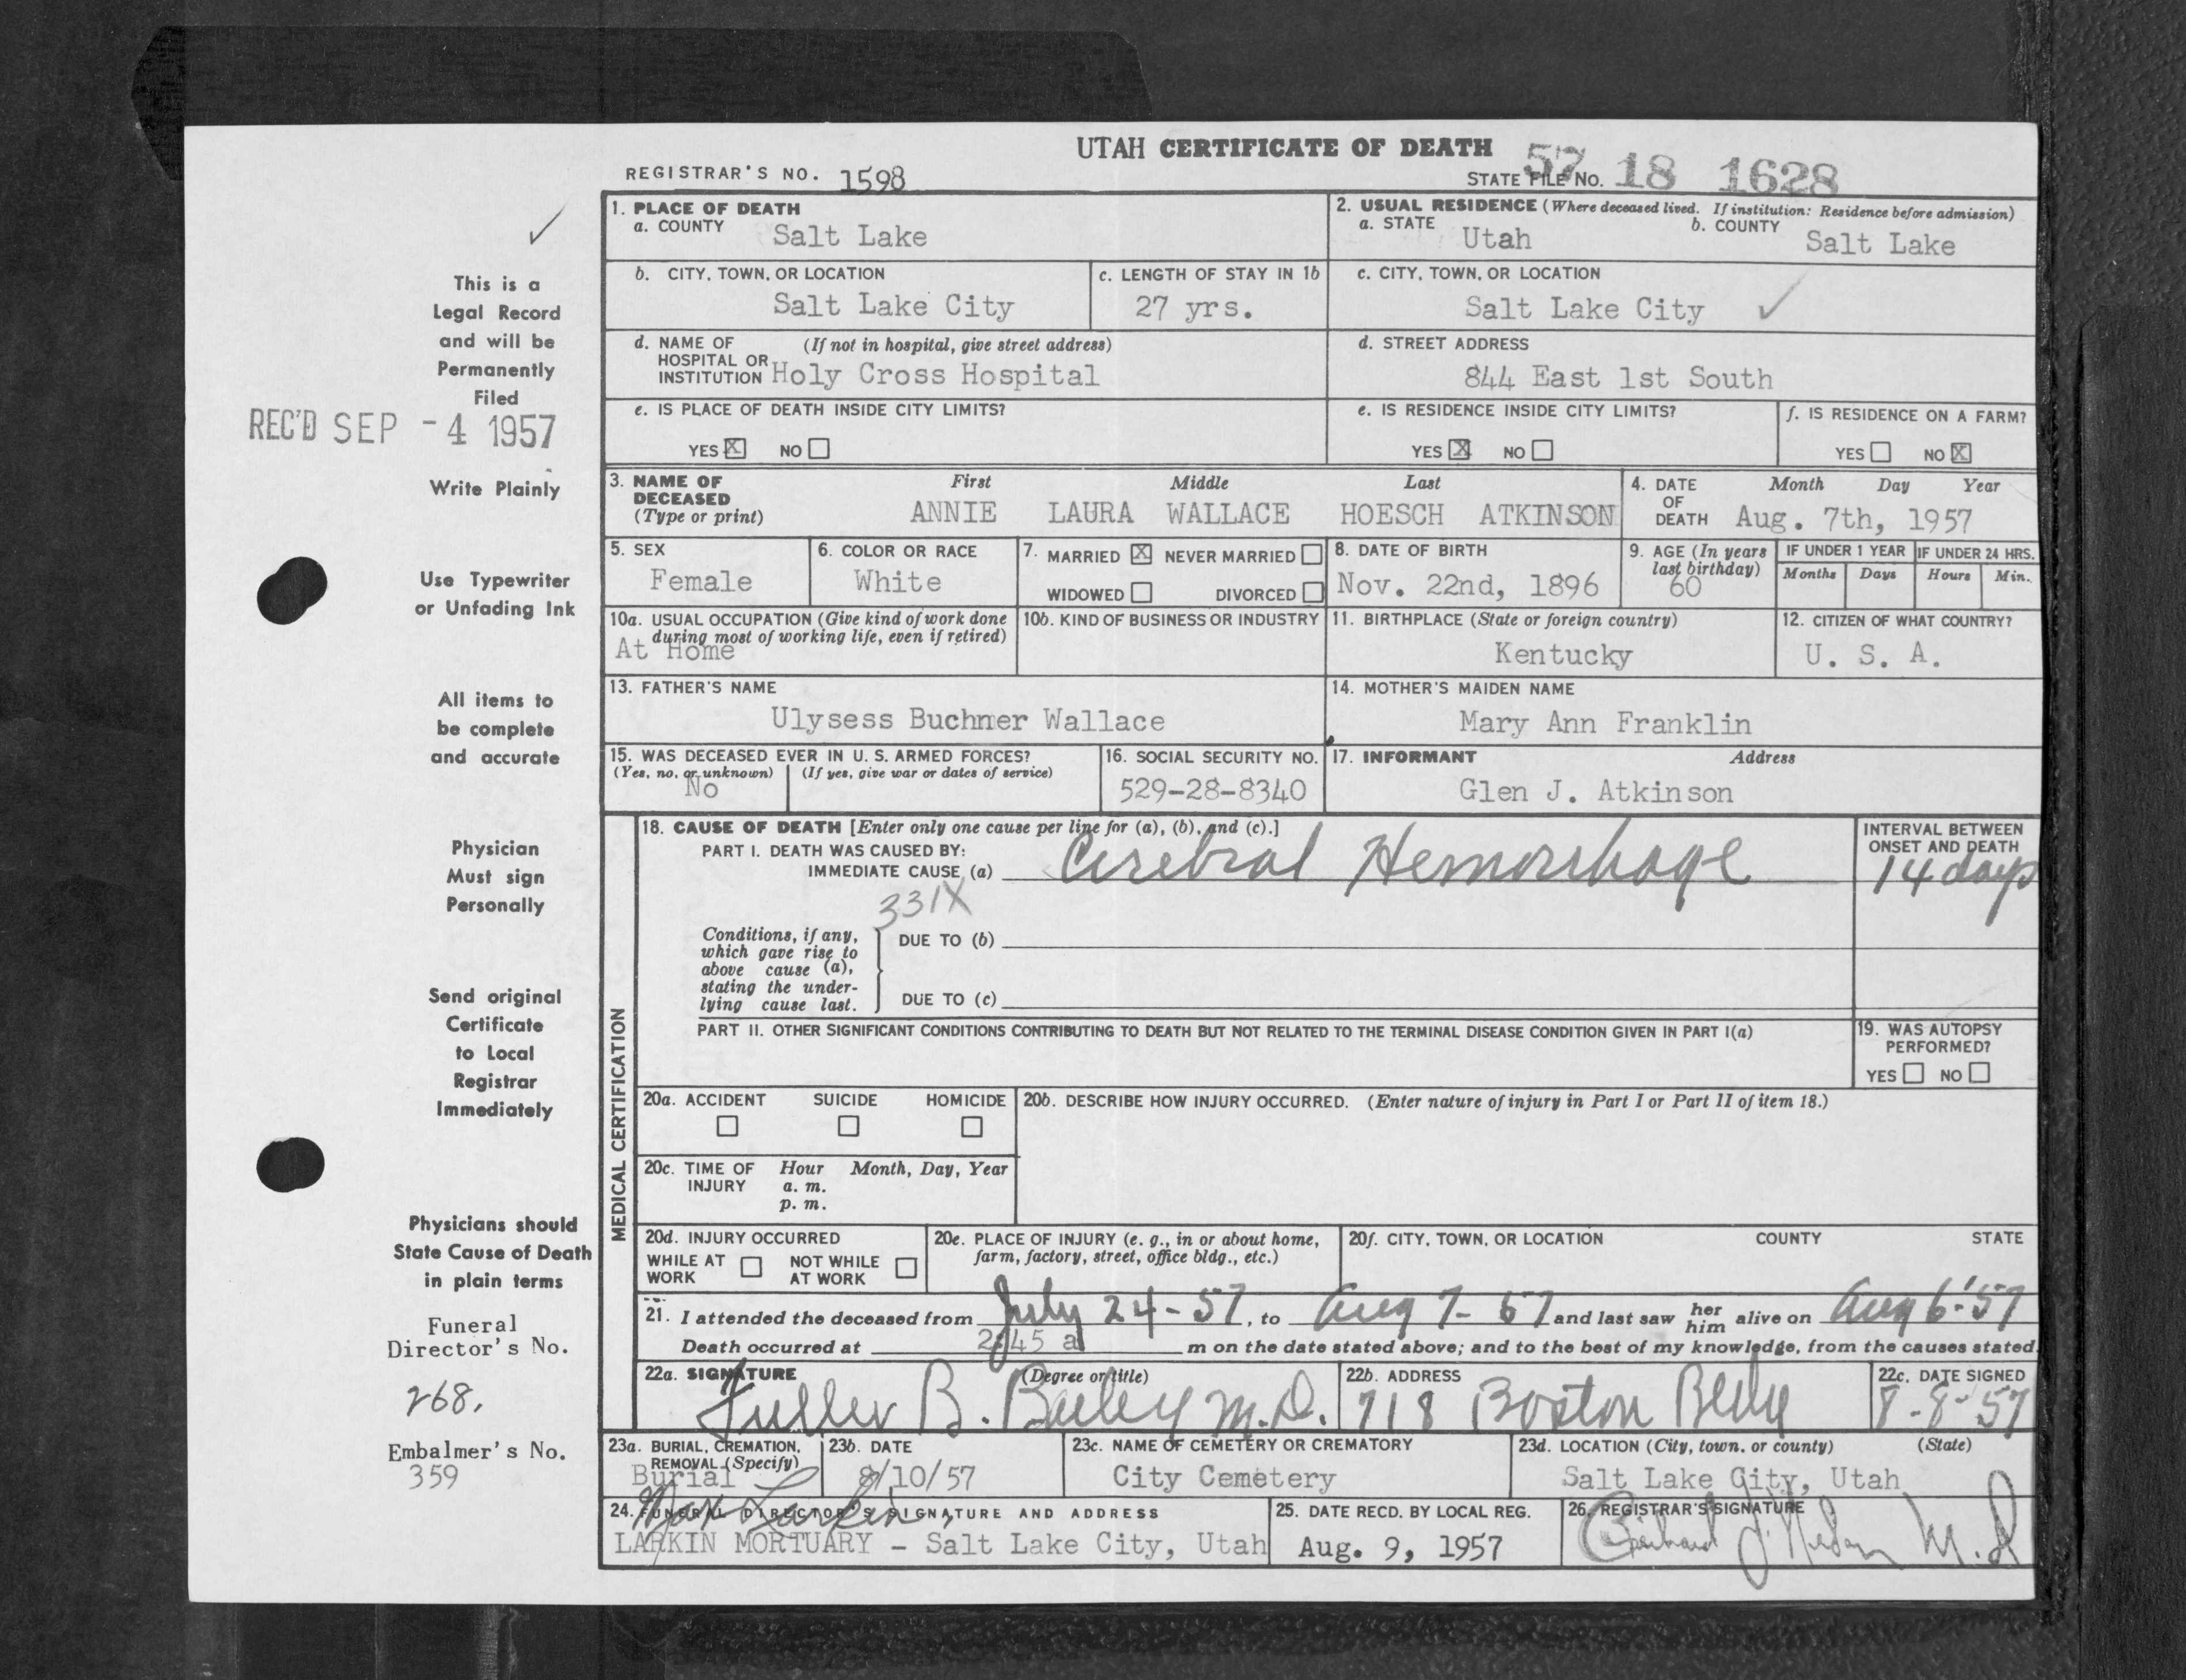 UTAH CERTIFICATE OF DEATH
REGISTRAR'S NO. 1598
STATE FILE NO. 57 18 1628
1. PLACE OF DEATH
a. COUNTY Salt Lake
2. USUAL RESIDENCE (Where deceased lived. If institution: Residence before admission)
a. STATE Utah b. COUNTY Salt Lake
b. CITY, TOWN, OR LOCATION
Salt Lake City
c. LENGTH OF STAY IN 1b
27 yrs.
c. CITY, TOWN, OR LOCATION
Salt Lake City
d. NAME OF (If not in hospital, give street address)
HOSPITAL OR
INSTITUTION Holy Cross Hospital
d. STREET ADDRESS
844 East 1st South
e. IS PLACE OF DEATH INSIDE CITY LIMITS?
YES X NO
e. IS RESIDENCE INSIDE CITY LIMITS?
YES X NO
f. IS RESIDENCE ON A FARM?
YES NO X
3. NAME OF First Middle Last
DECEASED
(Type or print) ANNIE LAURA WALLACE HOESCH ATKINSON
4. DATE Month Day Year
OF
DEATH Aug. 7th, 1957
5. SEX
Female
6. COLOR OR RACE
White
7. MARRIED X NEVER MARRIED
WIDOWED DIVORCED
8. DATE OF BIRTH
Nov. 22nd, 1896
9. AGE (In years
last birthday)
60
IF UNDER 1 YEAR
Months Days
IF UNDER 24 HRS.
Hours Min.
10a. USUAL OCCUPATION (Give kind of work done
during most of working life, even if retired)
At Home
10b. KIND OF BUSINESS OR INDUSTRY
11. BIRTHPLACE (State or foreign country)
Kentucky
12. CITIZEN OF WHAT COUNTRY?
U. S. A.
13. FATHER'S NAME
Ulysess Buchner Wallace
14. MOTHER'S MAIDEN NAME
Mary Ann Franklin
15. WAS DECEASED EVER IN U. S. ARMED FORCES?
(Yes, no, or unknown) (If yes, give war or dates of service)
No
16. SOCIAL SECURITY NO.
529-28-8340
17. INFORMANT Address
Glen J. Atkinson
MEDICAL CERTIFICATION
18. CAUSE OF DEATH [Enter only one cause per line for (a), (b), and (c).]
PART I. DEATH WAS CAUSED BY:
IMMEDIATE CAUSE (a) Cerebral Hemorrhage
INTERVAL BETWEEN
ONSET AND DEATH
14 days
331X
Conditions, if any,
which gave rise to
above cause (a),
stating the under-
lying cause last.
DUE TO (b)
DUE TO (c)
PART II. OTHER SIGNIFICANT CONDITIONS CONTRIBUTING TO DEATH BUT NOT RELATED TO THE TERMINAL DISEASE CONDITION GIVEN IN PART I(a)
19. WAS AUTOPSY
PERFORMED?
YES NO
20a. ACCIDENT SUICIDE HOMICIDE
20b. DESCRIBE HOW INJURY OCCURRED. (Enter nature of injury in Part I or Part II of item 18.)
20c. TIME OF Hour Month, Day, Year
INJURY a. m.
p. m.
20d. INJURY OCCURRED
WHILE AT NOT WHILE
WORK AT WORK
20e. PLACE OF INJURY (e. g., in or about home,
farm, factory, street, office bldg., etc.)
20f. CITY, TOWN, OR LOCATION COUNTY STATE
21. I attended the deceased from July 24-57, to Aug 7-57 and last saw her him alive on Aug 6-'57
Death occurred at 2:45 a m on the date stated above; and to the best of my knowledge, from the causes stated.
22a. SIGNATURE (Degree or title)
Fuller B. Bailey M.D.
22b. ADDRESS
718 Boston Bldg
22c. DATE SIGNED
8-8-57
23a. BURIAL, CREMATION,
REMOVAL (Specify)
Burial
23b. DATE
8/10/57
23c. NAME OF CEMETERY OR CREMATORY
City Cemetery
23d. LOCATION (City, town, or county) (State)
Salt Lake City, Utah
24. FUNERAL DIRECTOR'S SIGNATURE AND ADDRESS
Max Larkin
LARKIN MORTUARY - Salt Lake City, Utah
25. DATE RECD. BY LOCAL REG.
Aug. 9, 1957
26. REGISTRAR'S SIGNATURE
M.D
This is a
Legal Record
and will be
Permanently
Filed
REC'D SEP -4 1957
Write Plainly
Use Typewriter
or Unfading Ink
All items to
be complete
and accurate
Physician
Must sign
Personally
Send original
Certificate
to Local
Registrar
Immediately
Physicians should
State Cause of Death
in plain terms
Funeral
Director's No.
268.
Embalmer's No.
359